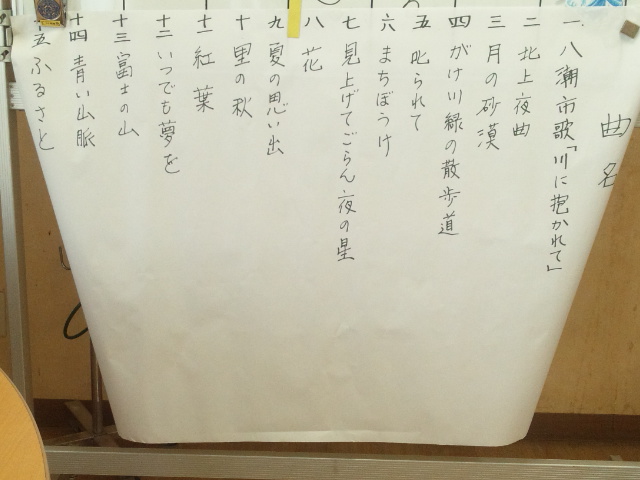 曲名
一 八潮市歌「川に抱かれて」
二 北上夜曲
三 月の砂漠
四 がけ川緑の散歩道
五 叱られて
六 まちぼうけ
七 見上げてごらん夜の星
八 花
九 夏の思い出
十 里の秋
十一 紅葉
十二 いつでも夢を
十三 富士の山
十四 青い山脈
十五 ふるさと